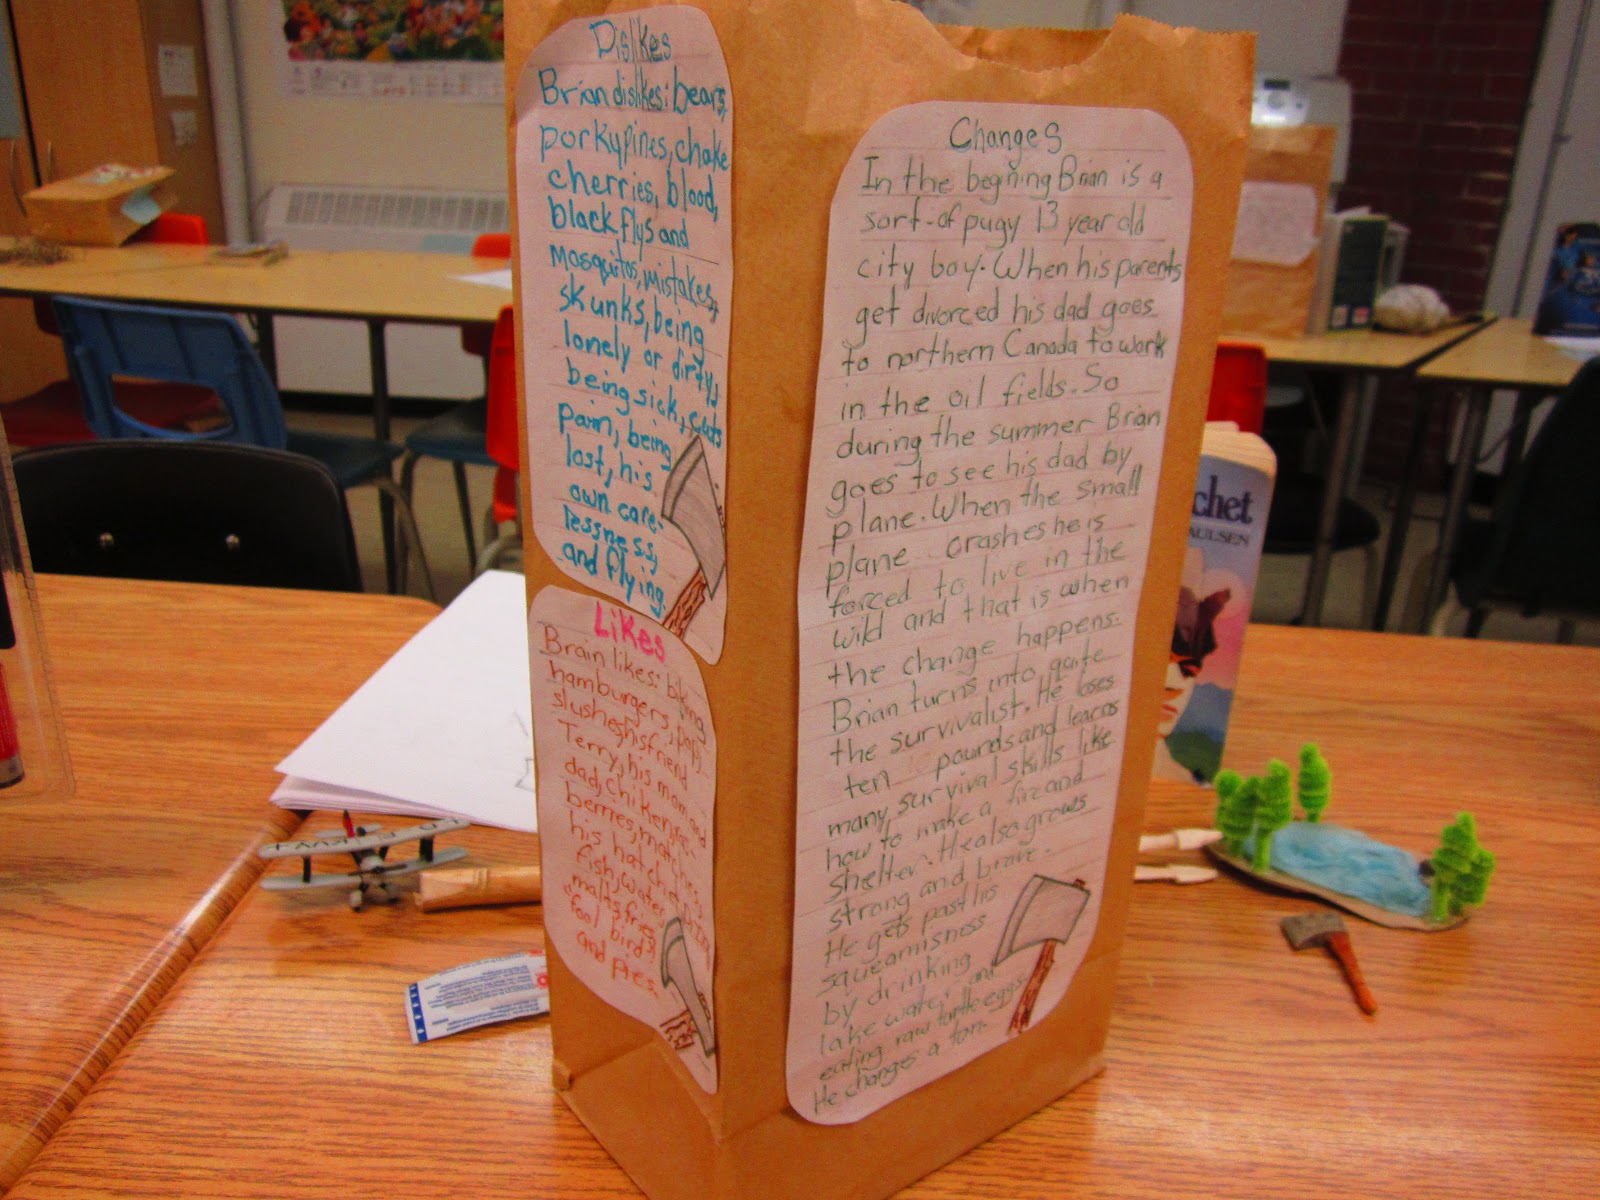 Dislikes
Brian dislikes: bears,
porkypines, choke
cherries, blood,
black flys and
mosquitos, mistakes,
skunks, being
lonely or dirty,
being sick, cuts
pain, being
lost, his
own care-
lessness,
and flying.
Likes
Brain likes: biking
hamburgers, pop,
slushes, his friend
Terry, his mom and
dad, chiken,
berries, matches,
his hatchet,
fish, water,
malts, fries
"fool birds"
and fires.
Changes
In the begning Brian is a
sort-of pugy 13 year old
city boy. When his parents
get divorced his dad goes
to northern Canada to work
in the oil fields. So
during the summer Brian
goes to see his dad by
plane. When the small
plane crashes he is
forced to live in the
wild and that is when
the change happens.
Brian turns into quite
the survivalist. He loses
ten pounds and learns
many survival skills like
how to make a fire and
shelter. He also grows
strong and brave.
He gets past his
squeamisness
by drinking
lake water and
eating raw turtle eggs.
He changes a ton.
chet
AULSEN